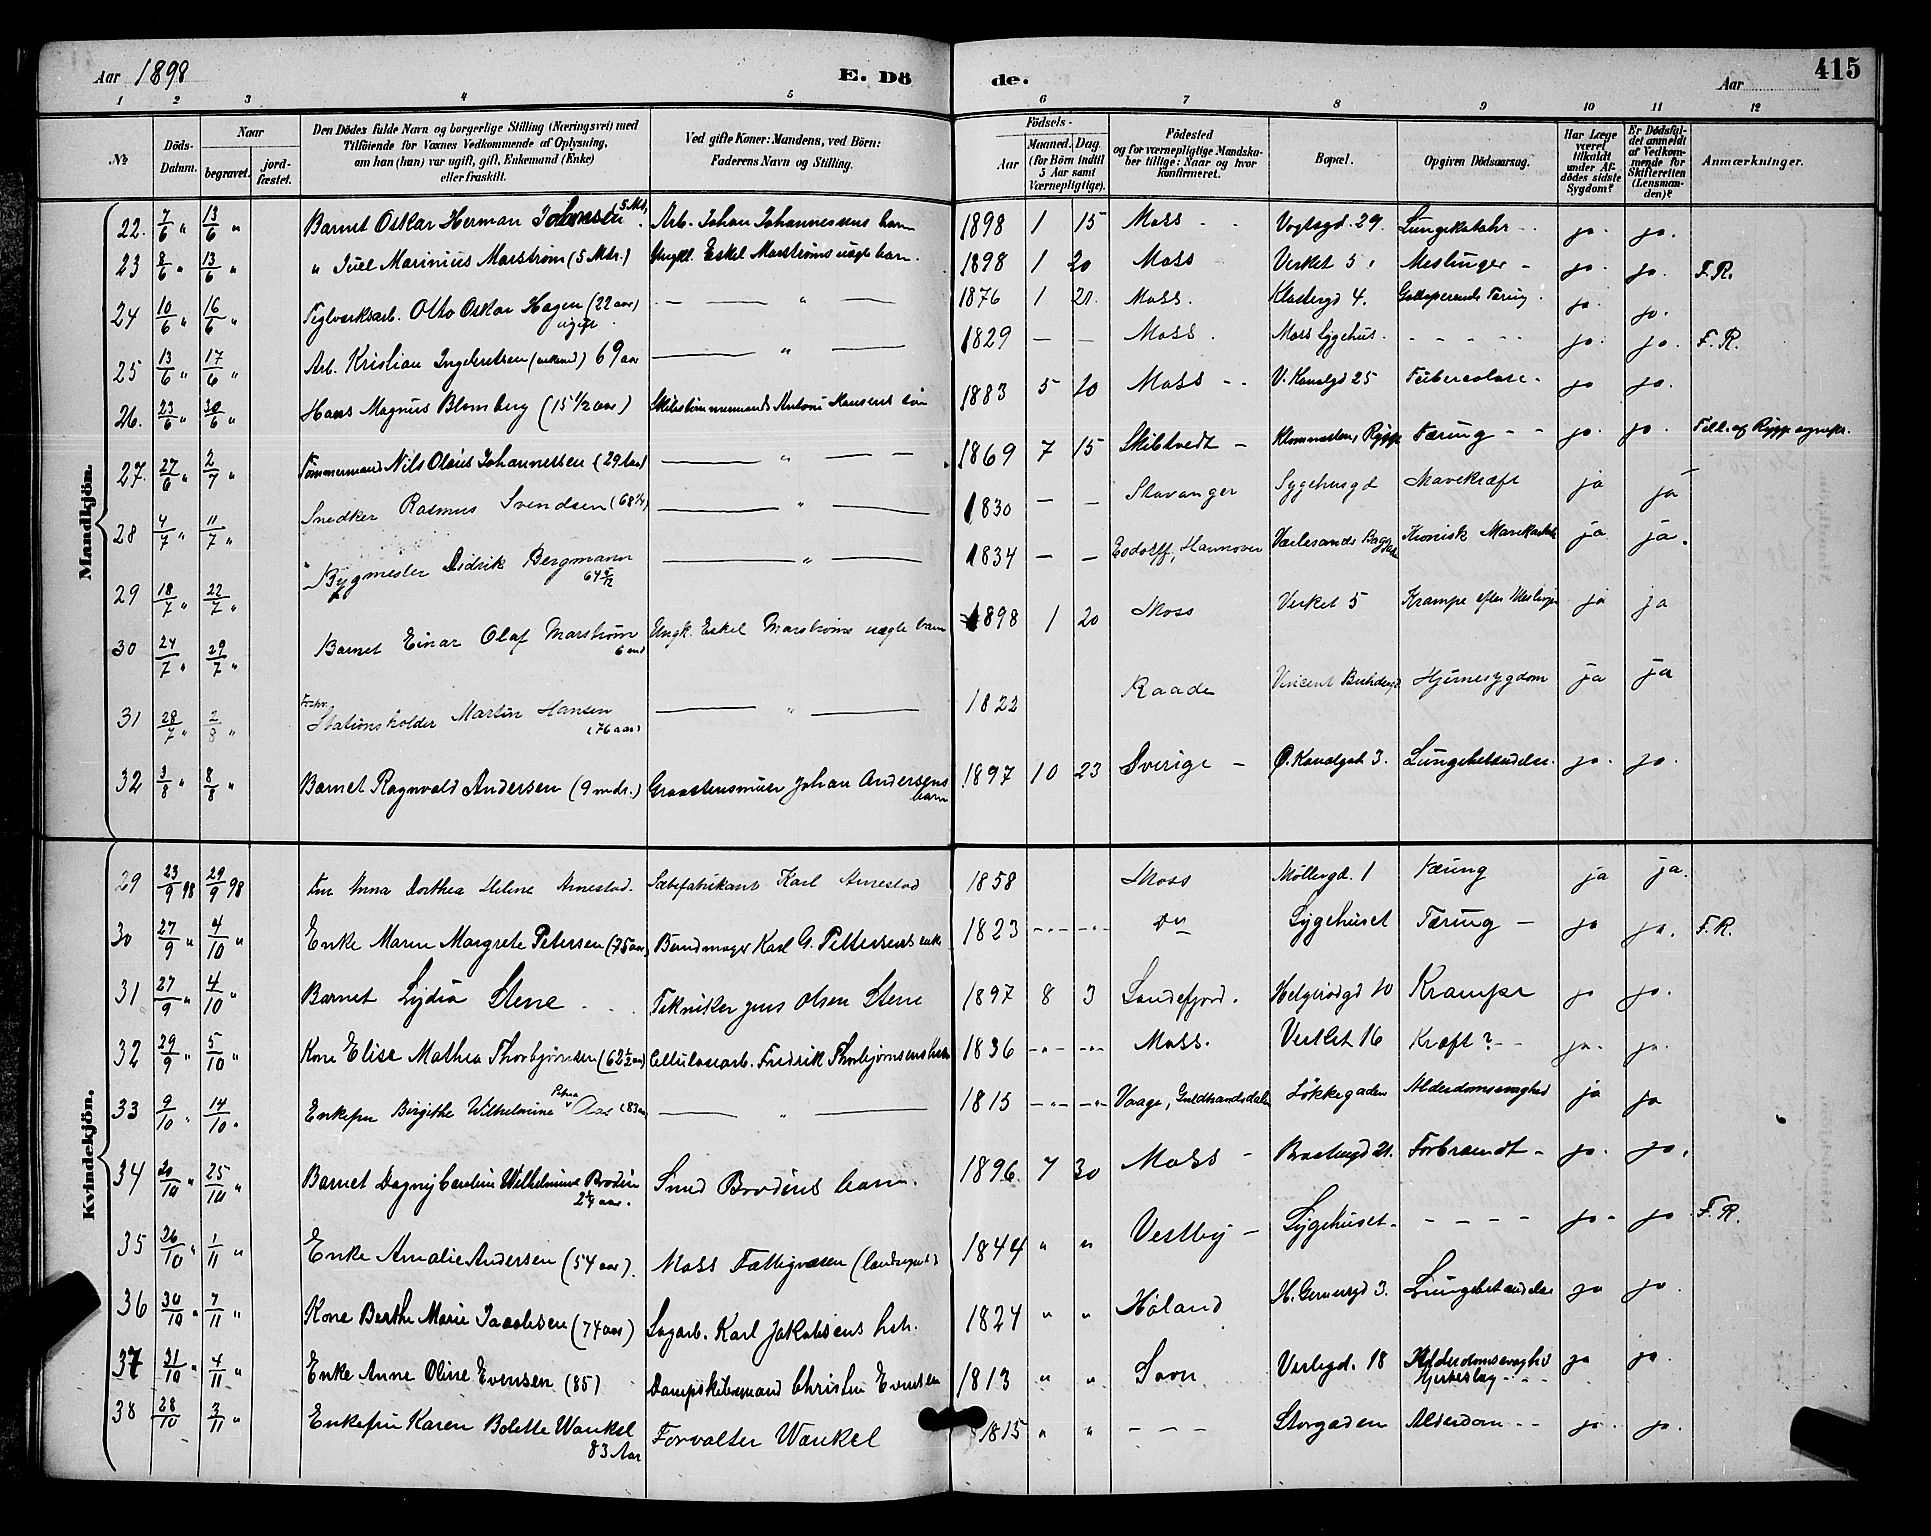 Aar 1898
E. Dö
de.
Aar
415
1 2 3 4 5 6 7 8 9 10 11 12
No
Döds-Datum.
Naar
begravet.
jord-fæstet.
Den Dödes fulde Navn og borgerlige Stilling (Næringsvei) med
Tilföiende for Voxnes Vedkommende af Oplysning,
om han (hun) var ugift, gift, Enkemand (Enke)
eller fraskilt.
Ved gifte Koner: Mandens, ved Börn:
Faderens Navn og Stilling.
Födsels-
Aar
Maaned. Dag.
(for Börn indtil
5 Aar samt
Værnepligtige).
Födested
og for værnepligtige Mandska-
ber tillige: Naar og hvor
konfirmeret.
Bopæl.
Opgiven Dödsaarsag.
Har Læge
været
tilkaldt
under Af-
dødes sidste
Sygdom?
Er Dødsfal-
det anmeldt
af Vedkom-
mende for
Skifteretten
(Lensman-
den)?
Anmærkninger.
Mandkjön.
22. 7/6 " 13/6 " Barnet Oskar Herman Johansen 5 Md. Arb. Johan Johannessens barn 1898 1 15 Moss Vogtsgd. 29. Lungekatahr ja. ja.
23 8/6 " 13/6 " " Juel Marinius Marstrøm (5 Mdr.) Ungkl. Eskel Marstrøms uægte barn. 1898 1 20 Moss Verket 5 Meslinger ja. ja. F.R.
24 10/6 " 16/6 " Teglverksarb. Otto Oskar Hagen (22 aar) ugift — " — 1876 1 21. Moss. Klostergd 4. Galloperende Tæring. ja. ja.
25 13/6 " 17/6 " Arb. Kristian Ingebretsen (enkemd) 69 aar — " — 1829 — — Moss. Moss Sygehus. - - - - ja. ja. F. R.
26. 23/6 " 30/6 " Hans Magnus Blomberg (15 1/2 aar) Skibstømmermands Antoni Hansens søn 1883 5 20 Moss V. Kanalgd 25 Tuberculose ja ja.
27. 27/6 " 2/7 " Tømmermand Nils Olaus Johannessen (29 aar) — " — 1869 7 15 Skibtvedt Rygge Tæring ja. ja.
28 4/7 " 11/7 " Snedker Rasmus Svendsen (68 1/4) — " — 1830 — — Stavanger Sygehusgd Mavekræft ja ja
29 18/7 " 22/7 " Bygmester Didrik Bergmann 64 5/12 — " — 1834 — — Hannover Værlesands Kronisk Mavekatarh ja ja.
30 24/7 " 29/7 " Barnet Einar Olaf Marstrøm 6 md Ungk. Eskel Marstrøms uægte barn 1898 1 20 Moss Verket 5 Krampe efter Meslinger ja ja
31 28/7 " 2/8 " Forhv. Stationsholder Martin Hansen (76 aar) — " — 1822 Raade Hjernesygdom ja ja
32 3/8 " 8/8 " Barnet Ragnvald Andersen (9 mdr.) Graastensmurer Johan Andersens barn 1897 10 23 Sverige Ø. Kanalgt 3. Lungebetændelse ja. ja.
Kvindekjön.
29 23/9 98 29/9 98 Fru Anna Dorthea Helene Arnestad. Sæbefabrikant Karl Arnestad 1858 Moss Møllergd. 1 Tæring ja ja.
30 27/9 " 4/10 " Enke Maren Margrete Petersen (75 aar) Bundmager Karl G. Pettersens enke 1823 -"- -"- do Sygehuset Tæring ja ja. F. R.
31 27/9 " 4/10 " Barnet Lydia Stene Tekniker Jens Olsen Stene 1897 8 3 Sandefjord. Helgerødgd 10 Krampe ja ja.
32 29/9 " 5/10 " Kone Elise Mathea Thorbjørnsen (62 1/2 aar) Cellulosearb. Fredrik Thorbjørnsens hstr 1836 -"- -"- Moss. Verket 16 Kræft? ja. ja.
33 9/10 " 14/10 " Enkefru Birgithe Wilhelmine Petrea Aas (83 aar) — " — 1815 -"- -"- Vaage, Guldbrandsdalen Løkkegaden Alderdomssvaghed ja ja
34 20/10 " 25/10 " Barnet Dagny Caroline Wilhelmine Brodin 2 1/4 aar. Smed Brodins barn. 1896 7 30 Moss Brastergd 21. Forbrændt ja. ja.
35 26/10 " 1/11 " Enke Amalie Andersen (54 aar). Moss Fattigvæsen 1844 " " Vestby Sygehuset. - - - - ja. ja F. R.
36 30/10 " 7/11 " Kone Berthe Marie Jacobsen (74 aar) Sagarb. Karl Jakobsens hstr. 1824 " " Høland H. Gernersgd 3. Lungebetændelse ja ja.
37 31/10 " 4/11 " Enke Anne Oline Evensen (85) Dampskibsmand Christen Evensen 1813 " " Soon Verlegd. 18 Alderdomssvaghed Hjerteslag ja ja.
38 28/10 3/11 " Enkefru Karen Bolette Wankel 83 Aar Forvalter Wankel 1815 " " - - - Storgaden Alderdom ja. ja.